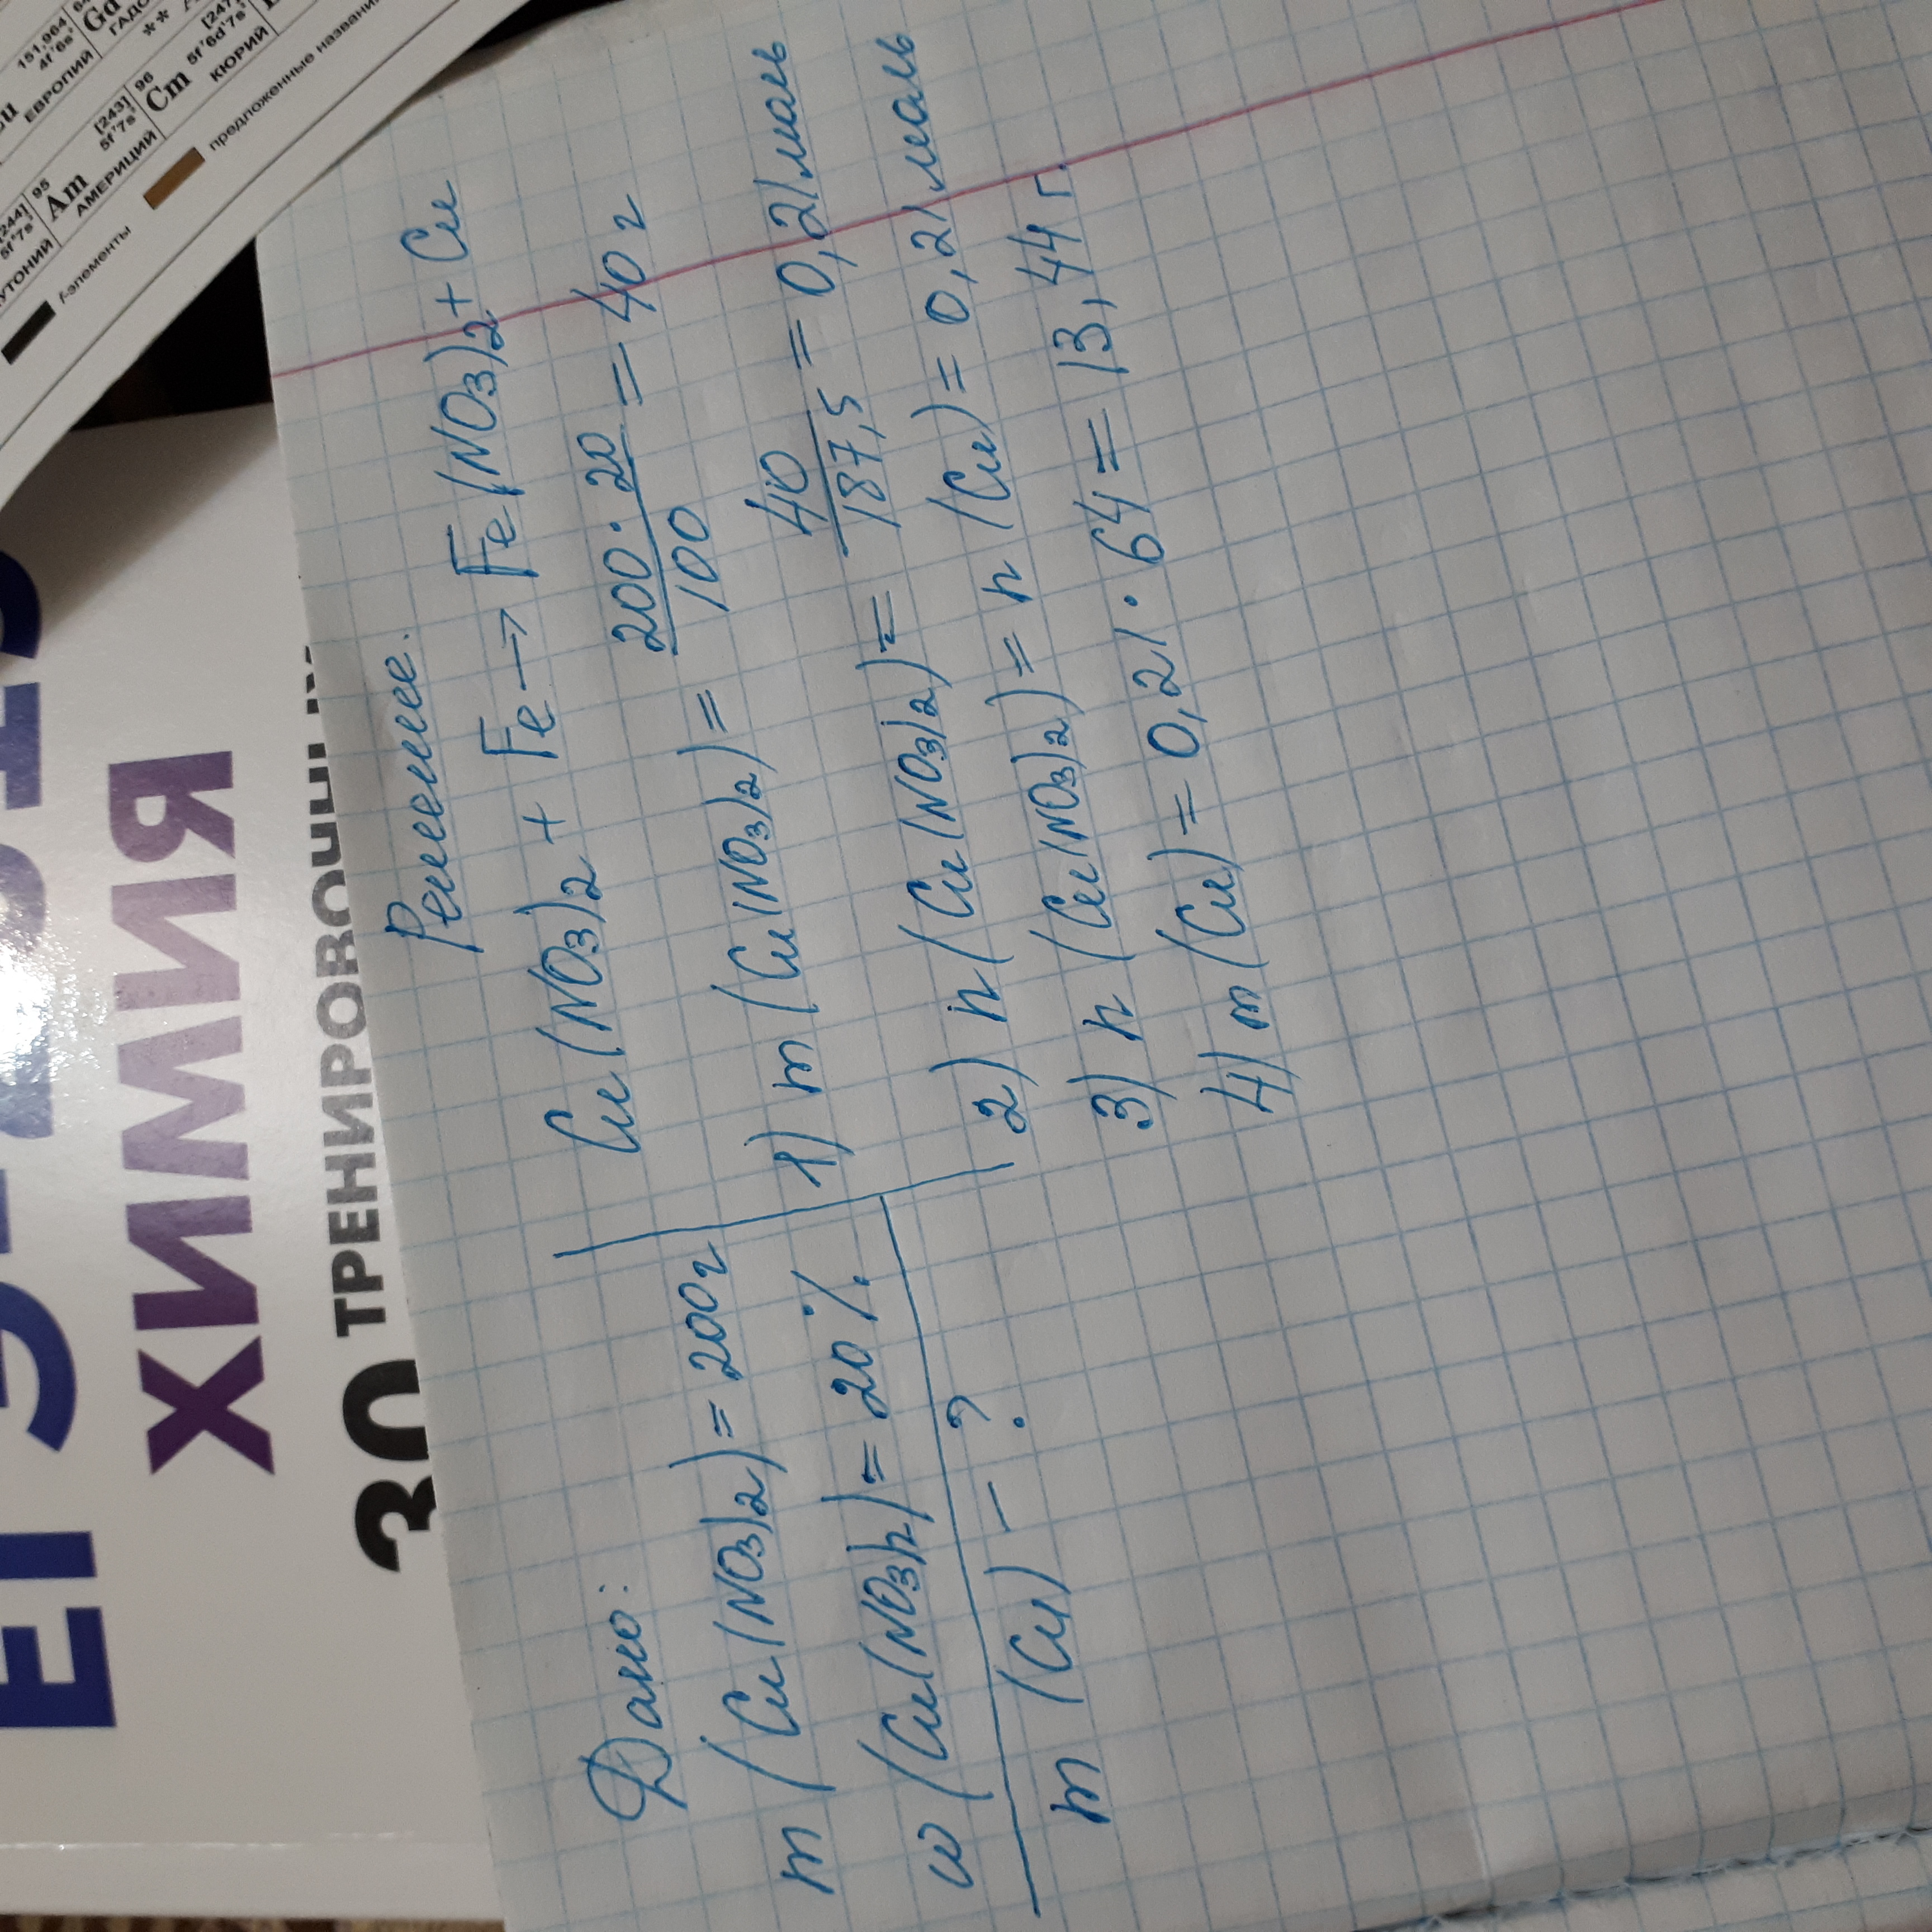 Дано:
m (Cu(NO3)2) = 200г
w (Cu(NO3)2) = 20%
m (Cu) - ?
Решение.
Cu(NO3)2 + Fe → Fe(NO3)2 + Cu
1) m (Cu(NO3)2) = 200 · 20 / 100 = 40 г
2) n (Cu(NO3)2) = 40 / 187,5 = 0,21 моль
3) n (Cu(NO3)2) = n (Cu) = 0,21 моль
4) m (Cu) = 0,21 · 64 = 13,44 г.
ХИМИЯ
30 ТРЕНИРОВОЧНЫХ
151,964
4f⁷6s²
ЕВРОПИЙ
Gd
[244]
[243]
5f⁷7s²
95
Am
АМЕРИЦИЙ
96
Cm
[247]
5f⁷6d¹7s²
КЮРИЙ
f-элементы
предложенные названия